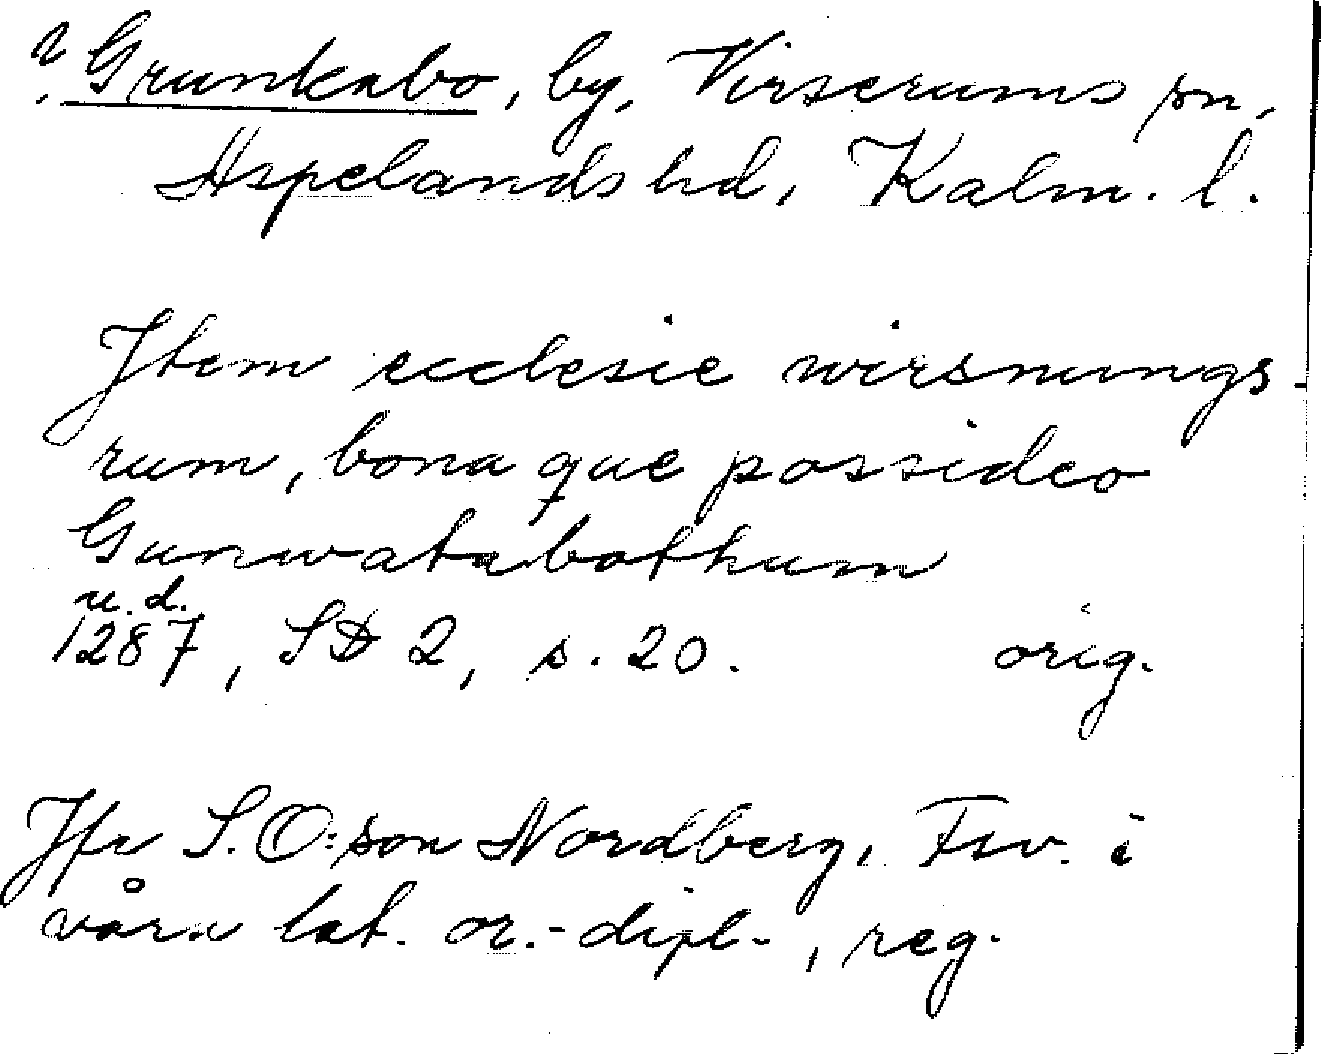 ? Grunkabo, by, Virserums sn,
Aspelands hd, Kalm. l.
Jtem ecclesie wirsnungs-
rum, bona que possideo
Gunwatabothum
u. d.
1287, SD 2, s. 20. orig.
Jfr S. O:son Nordberg, Fsv. i
våra lat. or.-dipl., reg.